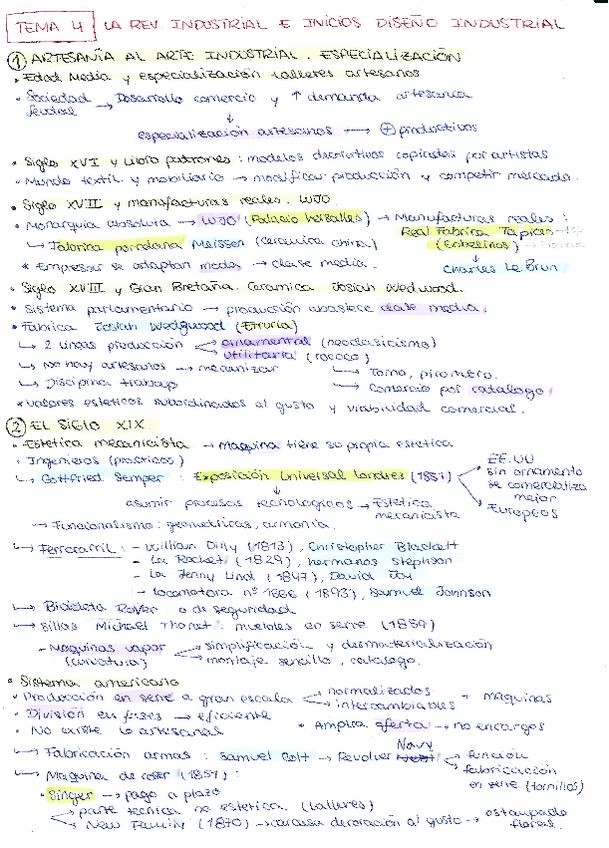 TEMA 4 LA REV. INDUSTRIAL E INICIOS DISEÑO INDUSTRIAL
① ARTESANÍA AL ARTE INDUSTRIAL. ESPECIALIZACIÓN
• Edad Media y especialización talleres artesanos
• Sociedad feudal → Desarrollo comercio y ↑ demanda artesanía
↓
especialización artesanos → ⊕ productivos
• Siglo XVI y Libro patrones: modelos decorativos copiados por artistas
• Mundo textil y mobiliario → modificar producción y competir mercado.
• Siglo XVII y manufacturas reales. LUJO
• Monarquía absoluta → LUJO (Palacio Versalles) → Manufacturas reales:
Real Fábrica Tapices
↳ Fábrica porcelana Meissen (cerámica china) (Gobelinos)
↓
* Empresas se adaptan moda → clase media. Charles Le Brun
• Siglo XVIII y Gran Bretaña. Cerámica Josiah Wedwood.
• Sistema parlamentario → producción abastece clase media.
• Fábrica Josiah Wedgwood (Etruria)
↳ 2 líneas producción < ornamental (neoclasicismo)
utilitaria (rococo)
↳ No hay artesanos → mecanizar ↳ Torno, pirómetro.
↳ Disciplina trabajo ↳ Comercio por catálogo
* Valores estéticos subordinados al gusto y viabilidad comercial.
② EL SIGLO XIX
• Estética mecanicista → Máquina tiene su propia estética
• Ingenieros (prácticos)
↳ Gottfried Semper: Exposición Universal Londres (1851) < EE.UU sin ornamento se comercializa mejor
Europeos
↓
asumir procesos tecnológicos → Estética mecanicista
→ Funcionalismo: geométricas, armonía.
↳ Ferrocarril: - William Dilly (1813), Christopher Blackett
- La Rocket (1829), hermanos Stephson
- La Jenny Lind (1847), David Joy
- Locomotora nº 1866 (1893), Samuel Johnson
↳ Bicicleta Rover o de seguridad
↳ Sillas Michael Thonet: muebles en serie (1859)
- Máquinas vapor (curvatura) < simplificación y desmaterialización
montaje sencillo, catálogo.
• Sistema americano
• Producción en serie a gran escala < normalizados
intercambiables = máquinas
• División en fases → eficiente
• No existe lo artesanal * Amplia oferta → no encargos
↳ Fabricación armas: Samuel Colt → Revolver Navy < función
fabricación en serie (tornillos)
↳ Máquina de coser (1851):
• Singer → pago a plazo
↳ parte técnica no estética. (talleres)
↳ New Family (1870) → carcasa decoración al gusto → estampado floral.